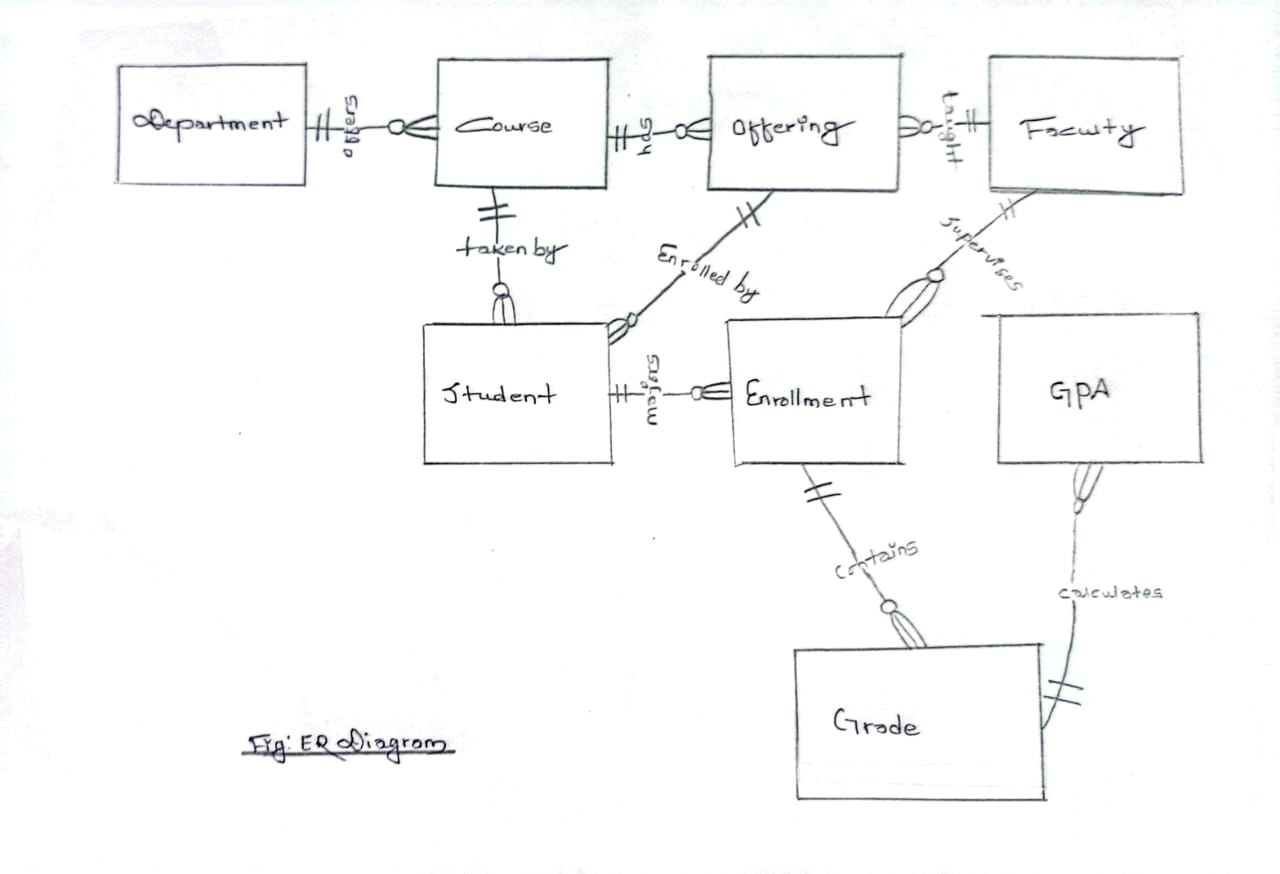 Department
offers
Course
has
Offering
taught
Faculty
taken by
Enrolled by
Supervises
Student
Enrollment
GPA
Contains
calculates
Grade
Fig: ER Diagram